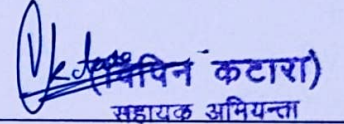 (विपिन कटारा)
सहायक अभियन्ता